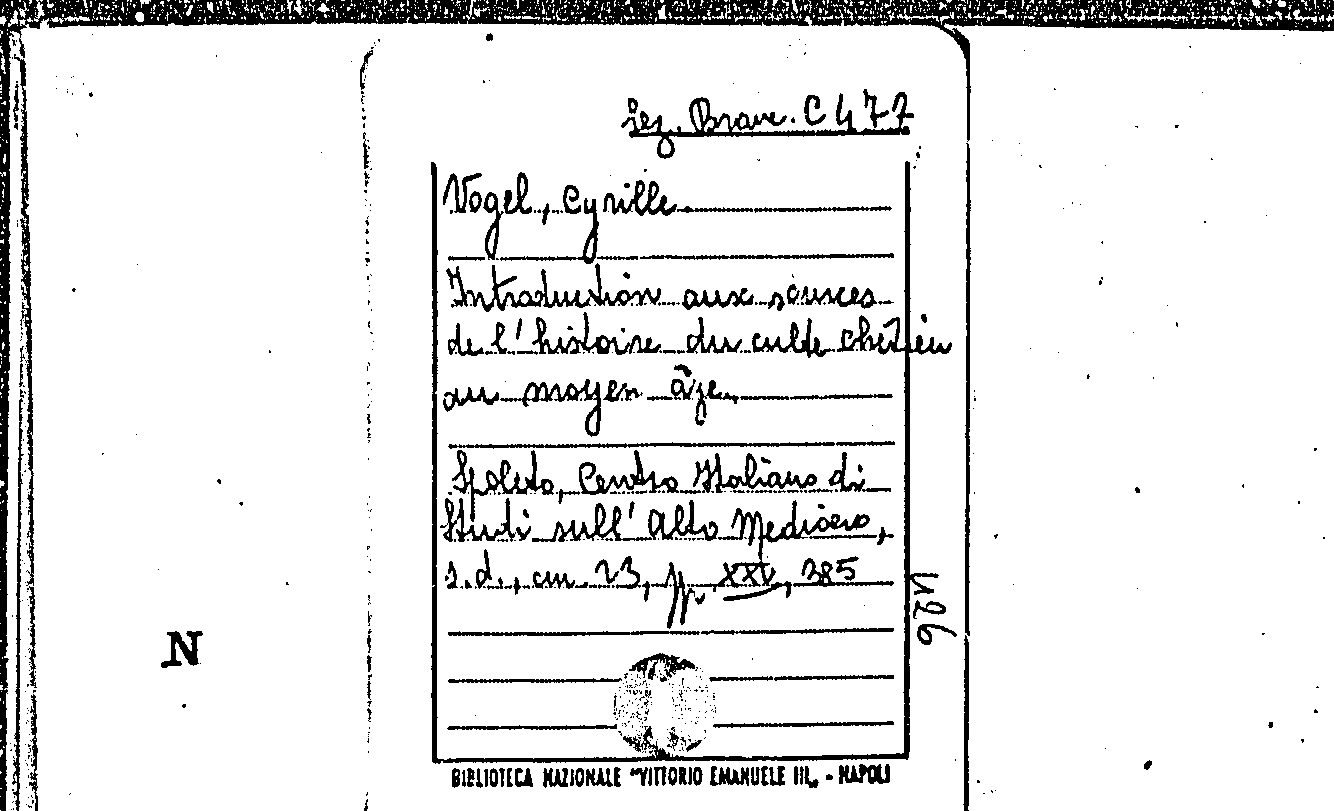 Sez. Branc. C 477
Vogel, Cyrille.
Introduction aux sources
de l'histoire du culte chrétien
au moyen âge.
Spoleto, Centro Italiano di
Studi sull'Alto Medioevo,
s.d., cm. 23, pp. XXV, 385
N
BIBLIOTECA NAZIONALE "VITTORIO EMANUELE III„ - NAPOLI